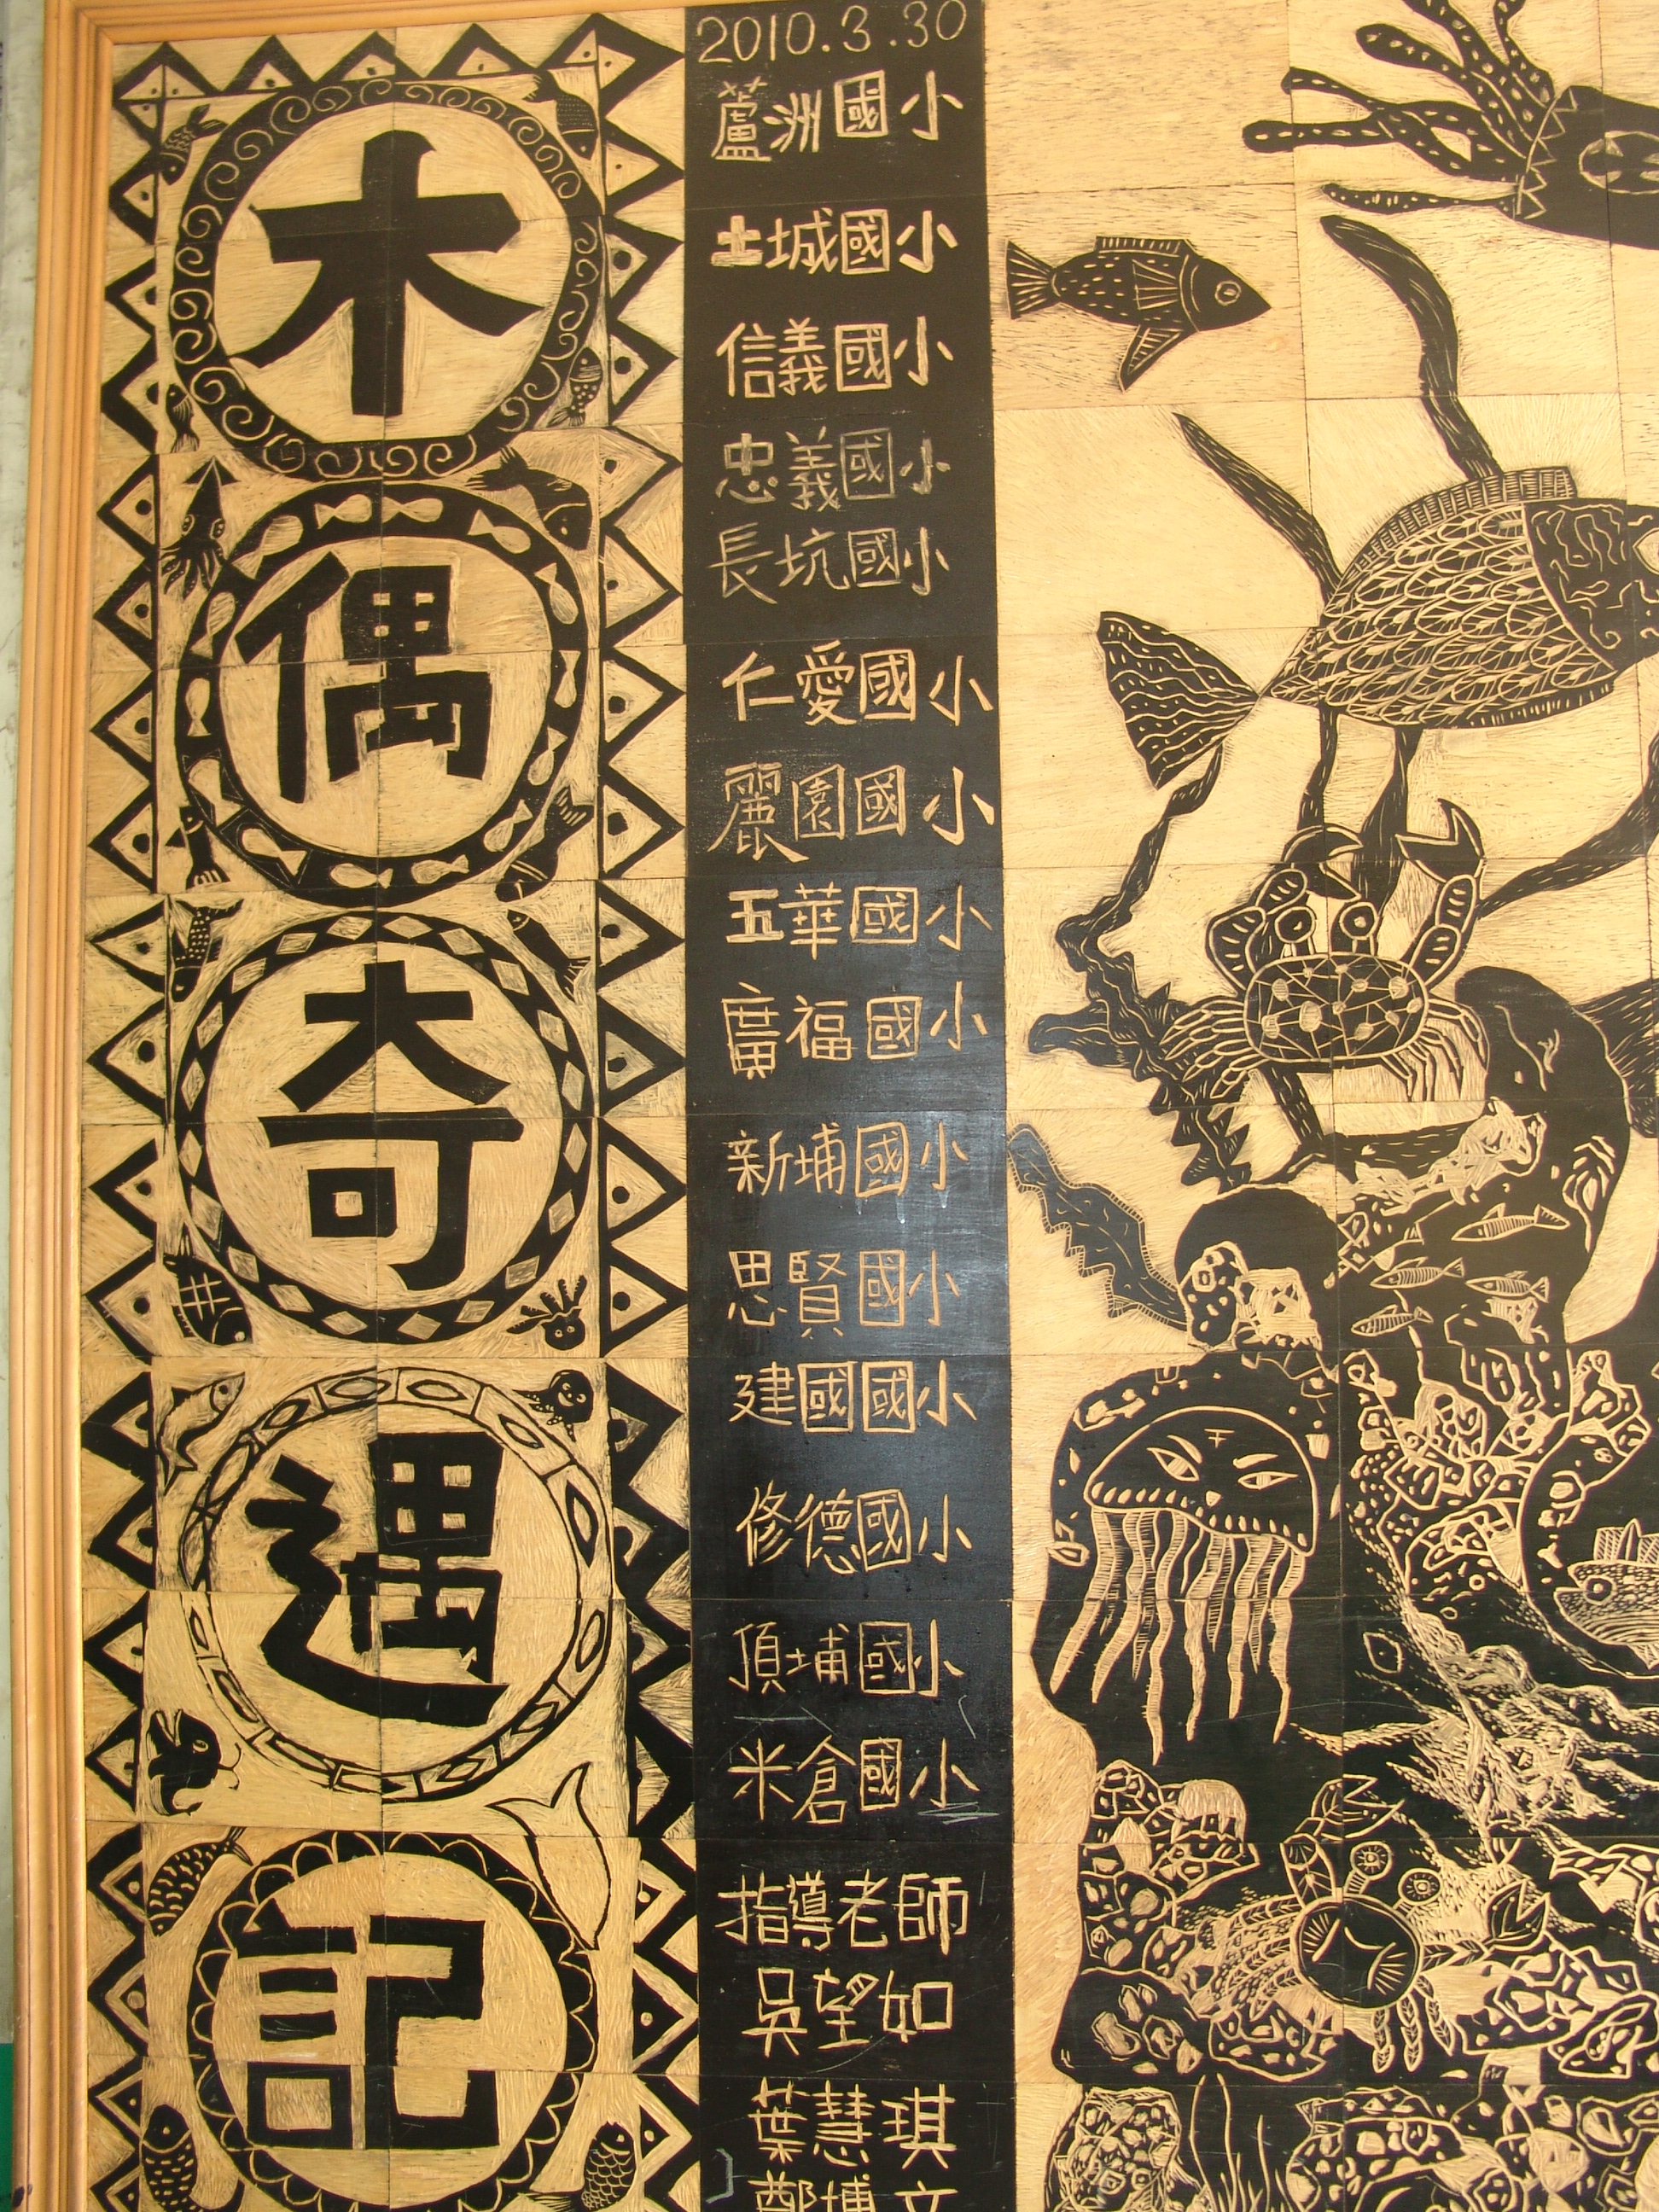 木偶奇遇記
2010.3.30
蘆洲國小
土城國小
信義國小
忠義國小
長坑國小
仁愛國小
麗園國小
五華國小
廣福國小
新埔國小
思賢國小
建國國小
修德國小
頂埔國小
米倉國小
指導老師
吳望如
葉慧琪
鄭博文